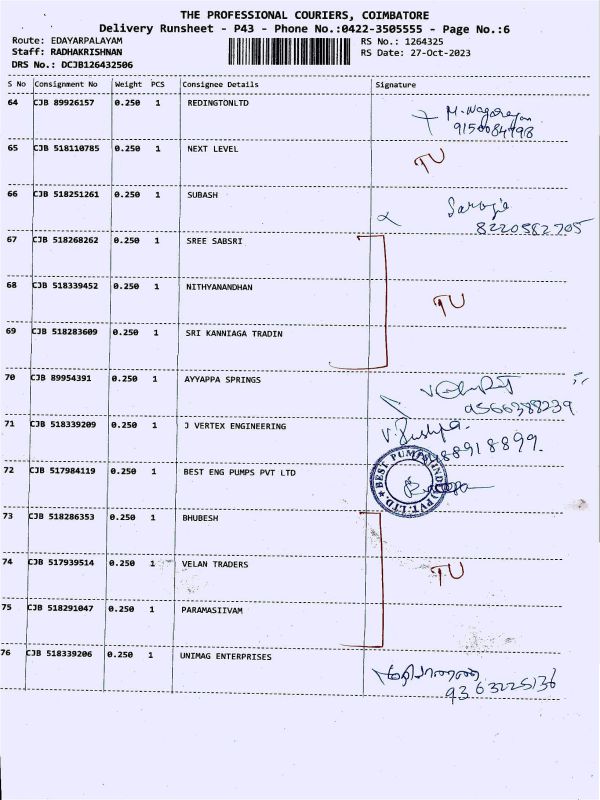 THE PROFESSIONAL COURIERS, COIMBATORE
Delivery Runsheet - P43 - Phone No.:0422-3505555 - Page No.:6
Route: EDAYARPALAYAM RS No.: 1264325
Staff: RADHAKRISHNAN RS Date: 27-Oct-2023
DRS No.: DCJB126432506
S No Consignment No Weight PCS Consignee Details Signature
64 CJB 89926157 0.250 1 REDINGTONLTD
9150084498
65 CJB 518110785 0.250 1 NEXT LEVEL TU
66 CJB 518251261 0.250 1 SUBASH
8220582705
67 CJB 518268262 0.250 1 SREE SABSRI
68 CJB 518339452 0.250 1 NITHYANANDHAN TU
69 CJB 518283609 0.250 1 SRI KANNIAGA TRADIN
70 CJB 89954391 0.250 1 AYYAPPA SPRINGS
9566388239
71 CJB 518339209 0.250 1 J VERTEX ENGINEERING V. Pushpa.
88918899.
72 CJB 517984119 0.250 1 BEST ENG PUMPS PVT LTD BEST PUMPS (INDIA) PVT. LTD
73 CJB 518286353 0.250 1 BHUBESH
74 CJB 517939514 0.250 1 VELAN TRADERS TU
75 CJB 518291047 0.250 1 PARAMASIIVAM
76 CJB 518339206 0.250 1 UNIMAG ENTERPRISES
9363225136